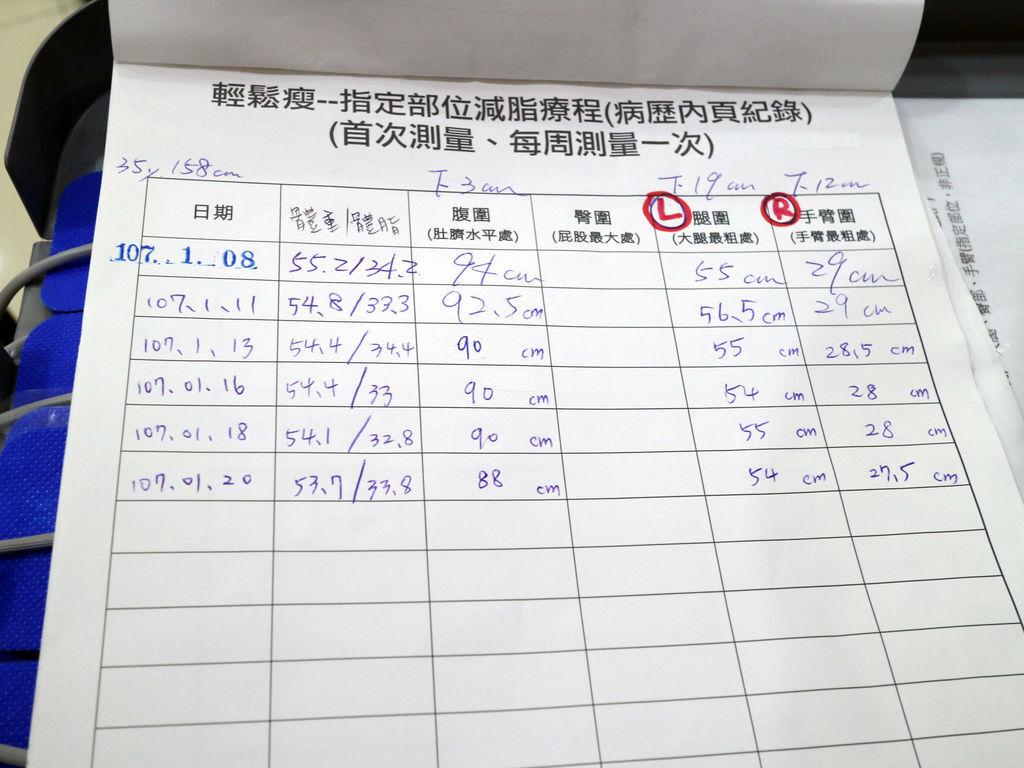 輕鬆瘦--指定部位減脂療程(病歷內頁紀錄)
(首次測量、每周測量一次)
35y 158cm 下3cm 下19cm 下12cm
日期 體重/體脂 腹圍 臀圍 L 腿圍 R 手臂圍
(肚臍水平處) (屁股最大處) (大腿最粗處) (手臂最粗處)
107.1.08 55.2/34.2 94cm 55cm 29cm
107.1.11 54.8/33.3 92.5cm 56.5cm 29cm
107.1.13 54.4/34.4 90cm 55cm 28.5cm
107.01.16 54.4/33 90cm 54cm 28cm
107.01.18 54.1/32.8 90cm 55cm 28cm
107.01.20 53.7/33.8 88cm 54cm 27.5cm
、臀部、手臂(指定部位、非正規)